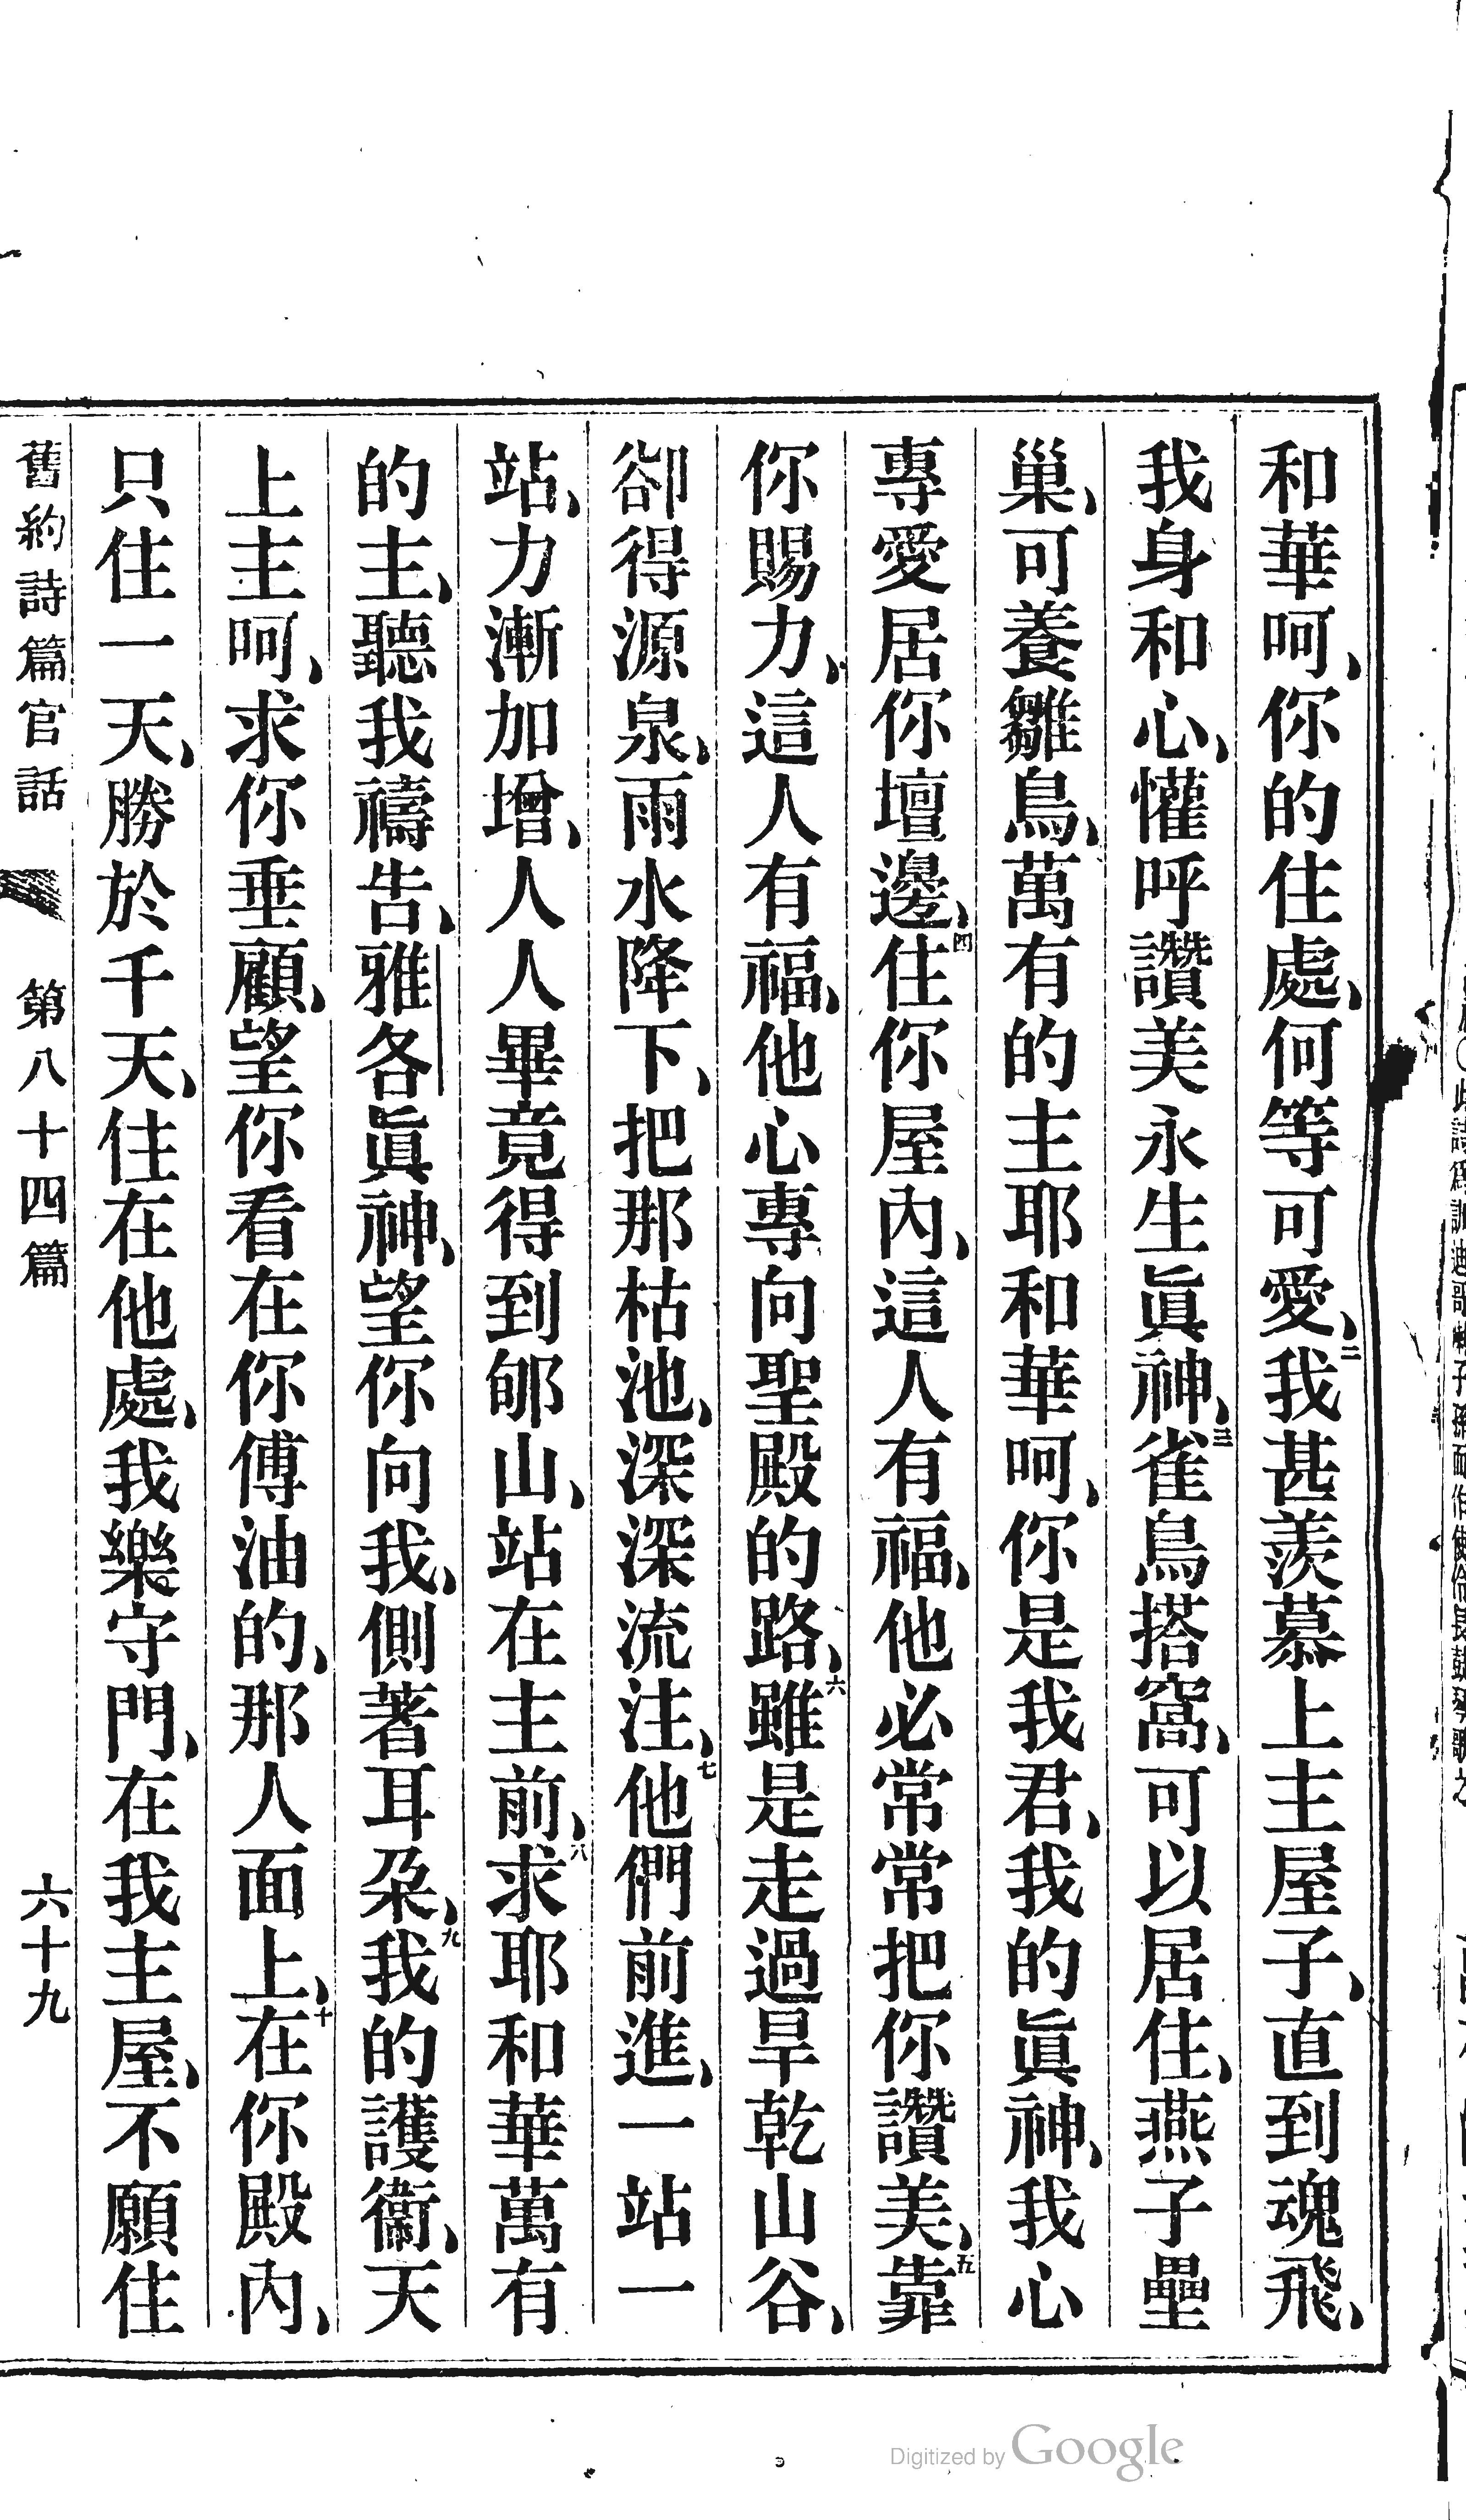 和華呵、你的住處、何等可愛、二我甚羨慕上主屋子、直到魂飛、
我身和心、懽呼讚美永生眞神、三雀鳥搭窩、可以居住、燕子壘
巢、可養雛鳥、萬有的主耶和華呵、你是我君、我的眞神、我心
專愛居你壇邊、四住你屋內、這人有福、他必常常把你讚美、五靠
你賜力、這人有福、他心專向聖殿的路、六雖是走過旱乾山谷、
卻得源泉、雨水降下、把那枯池、深深流注、七他們前進、一站一
站、力漸加增、人人畢竟得到郇山、站在主前、八求耶和華萬有
的主、聽我禱告、雅各眞神、望你向我、側著耳朶、九我的護衞、天
上主呵、求你垂顧、望你看在你傅油的、那人面上、十在你殿內、
只住一天、勝於千天、住在他處、我樂守門、在我主屋、不願住
舊約詩篇官話 第八十四篇 六十九
Digitized by Google